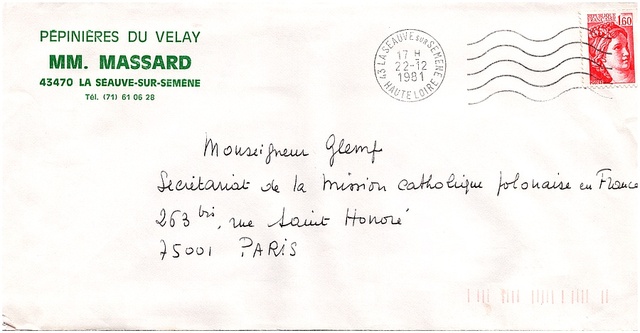 PÉPINIÈRES DU VELAY
MM. MASSARD
43470 LA SÉAUVE-SUR-SEMÈNE
Tél. (71) 61 06 28
43 LA SEAUVE sur SEMENE
17 H
22-12
1981
HAUTE LOIRE
1,60
Monseigneur Glemp
Secrétariat de la Mission catholique polonaise en France
263 bis, rue Saint Honoré
75001 PARIS